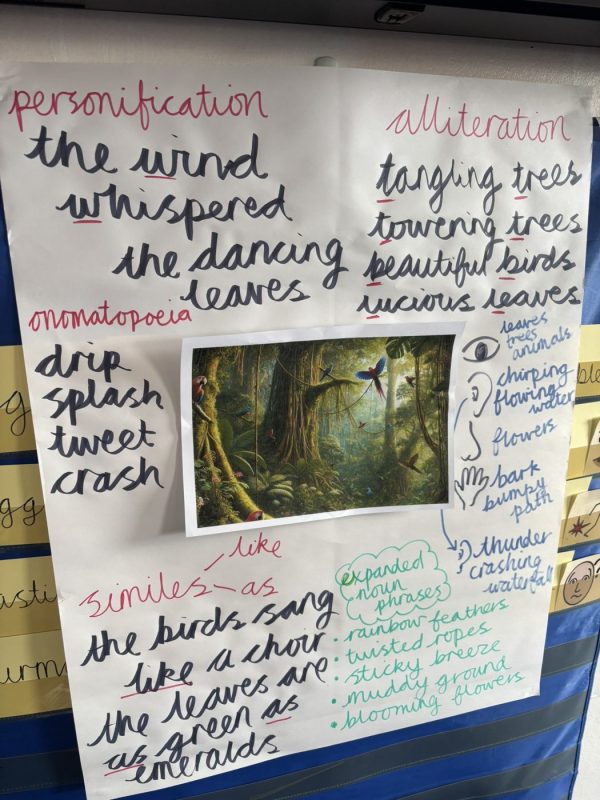 personification
the wind
whispered
the dancing
leaves
alliteration
tangling trees
towering trees
beautiful birds
lucious leaves
onomatopoeia
drip
splash
tweet
crash
leaves
trees
animals
chirping
flowing
water
flowers
bark
bumpy
path
thunder
crashing
waterfall
similes
like
as
the birds sang
like a choir
the leaves are
as green as
emeralds
expanded
noun
phrases
• rainbow feathers
• twisted ropes
• sticky breeze
• muddy ground
• blooming flowers